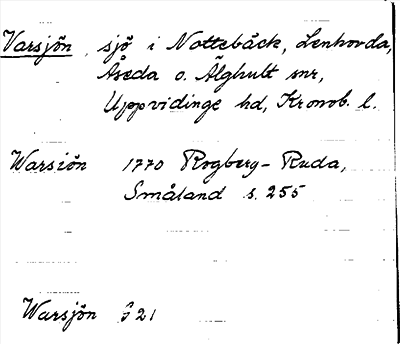 Varsjön, sjö i Nottebäck, Lenhovda,
Åseda o. Älghult snr,
Uppvidinge hd, Kronob. l.
Warsiön 1770 Rogberg-Ruda,
Småland s. 255
Warsjön S 21